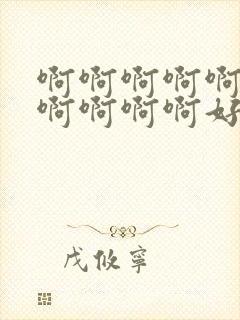 啊啊啊啊啊
啊啊啊啊好
戊攸寧